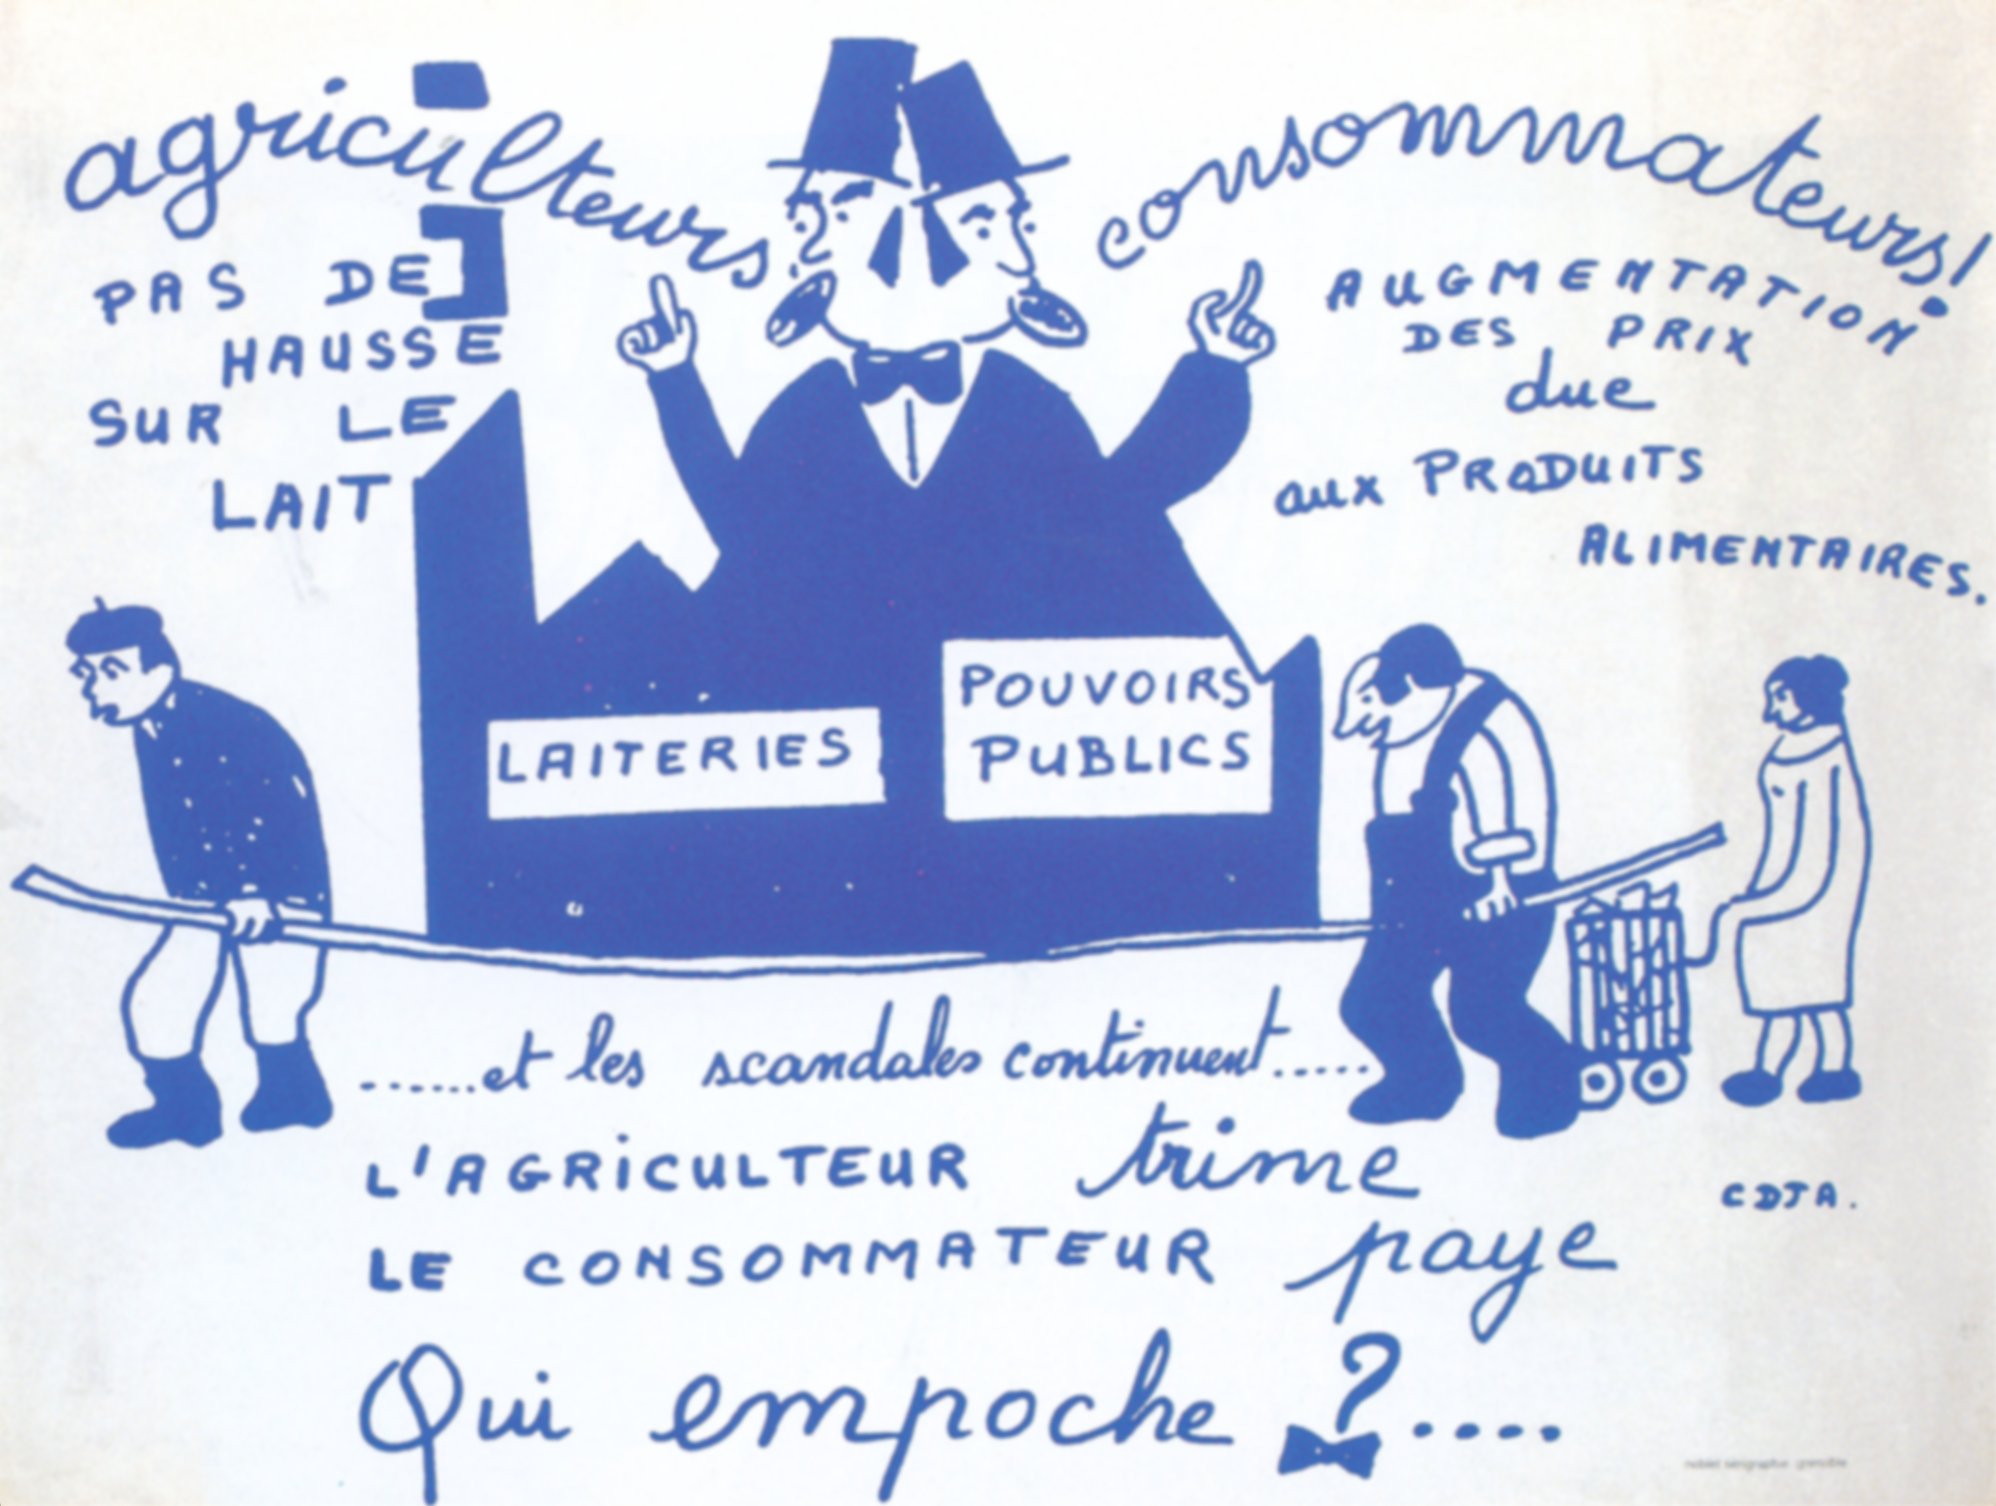 agriculteurs
PAS DE
HAUSSE
SUR LE
LAIT
consommateurs!
AUGMENTATION
DES PRIX
due
aux PRODUITS
ALIMENTAIRES.
LAITERIES
POUVOIRS
PUBLICS
......et les scandales continuent.....
L'AGRICULTEUR trime
LE CONSOMMATEUR paye
Qui empoche ?....
CDJA.